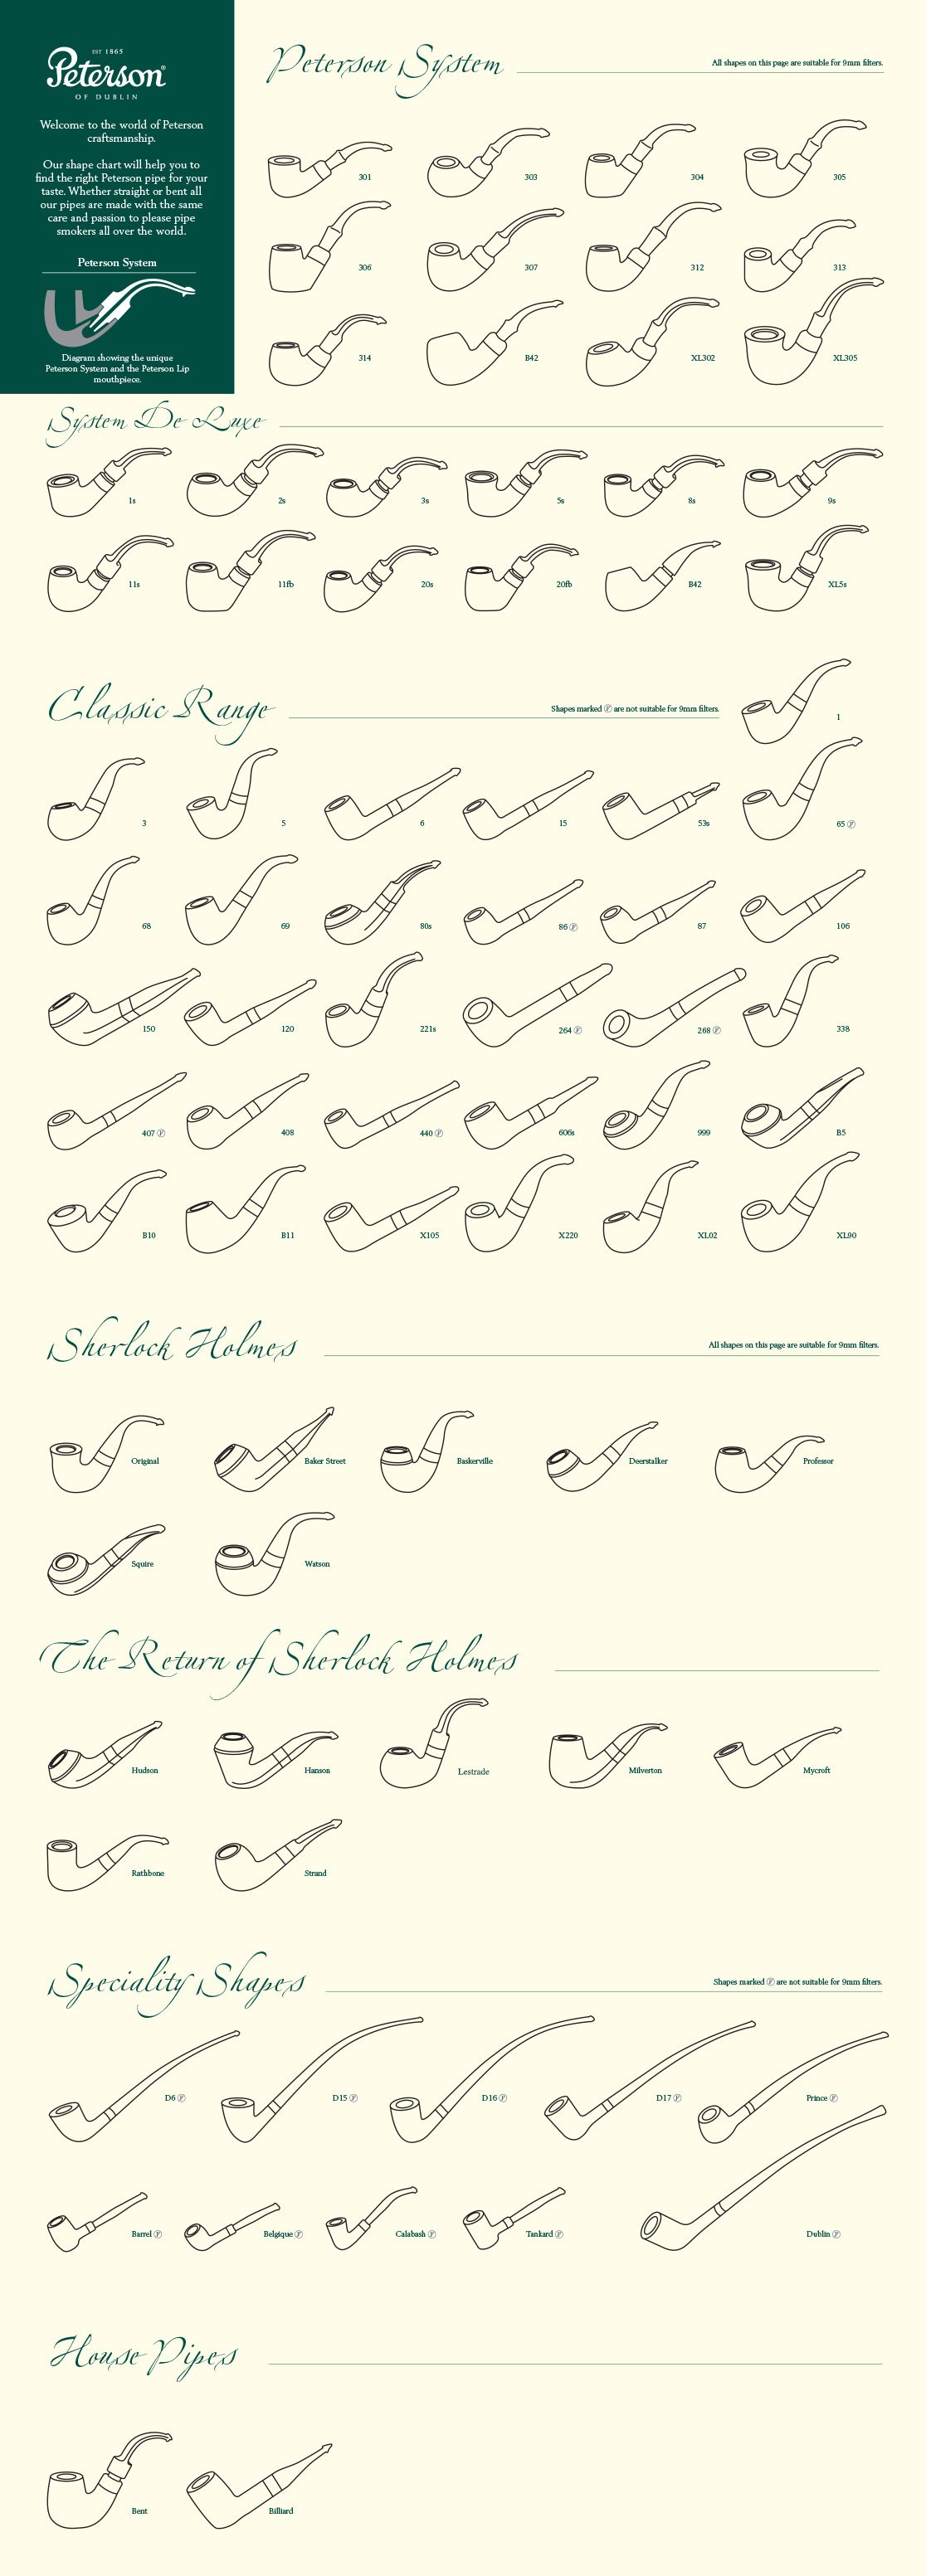 EST 1865
Peterson®
OF DUBLIN
Welcome to the world of Peterson
craftsmanship.
Our shape chart will help you to
find the right Peterson pipe for your
taste. Whether straight or bent all
our pipes are made with the same
care and passion to please pipe
smokers all over the world.
Peterson System
Diagram showing the unique
Peterson System and the Peterson Lip
mouthpiece.
Peterson System
All shapes on this page are suitable for 9mm filters.
301 303 304 305
306 307 312 313
314 B42 XL302 XL305
System De Luxe
1s 2s 3s 5s 8s 9s
11s 11fb 20s 20fb B42 XL5s
Classic Range
Shapes marked Ⓟ are not suitable for 9mm filters.
1
3 5 6 15 53s 65 Ⓟ
68 69 80s 86 Ⓟ 87 106
150 120 221s 264 Ⓟ 268 Ⓟ 338
407 Ⓟ 408 440 Ⓟ 606s 999 B5
B10 B11 X105 X220 XL02 XL90
Sherlock Holmes
All shapes on this page are suitable for 9mm filters.
Original Baker Street Baskerville Deerstalker Professor
Squire Watson
The Return of Sherlock Holmes
Hudson Hanson Lestrade Milverton Mycroft
Rathbone Strand
Speciality Shapes
Shapes marked Ⓟ are not suitable for 9mm filters.
D6 Ⓟ D15 Ⓟ D16 Ⓟ D17 Ⓟ Prince Ⓟ
Barrel Ⓟ Belgique Ⓟ Calabash Ⓟ Tankard Ⓟ Dublin Ⓟ
House Pipes
Bent Billiard